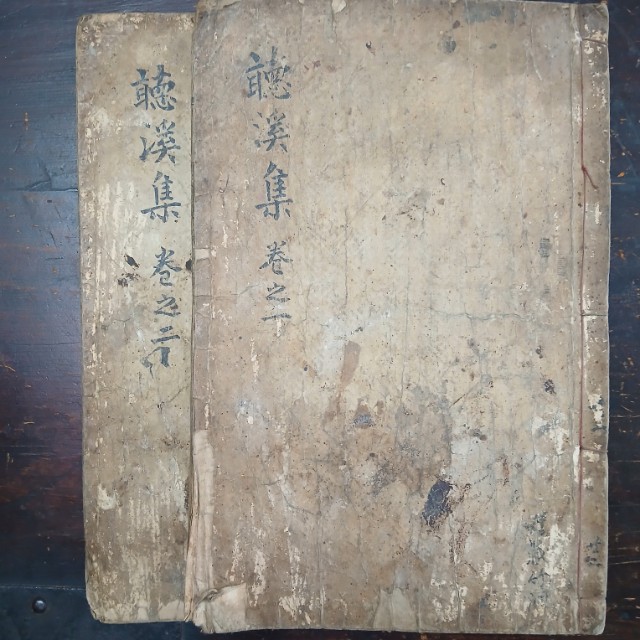 聽溪集 卷之一
聽溪集 卷之二